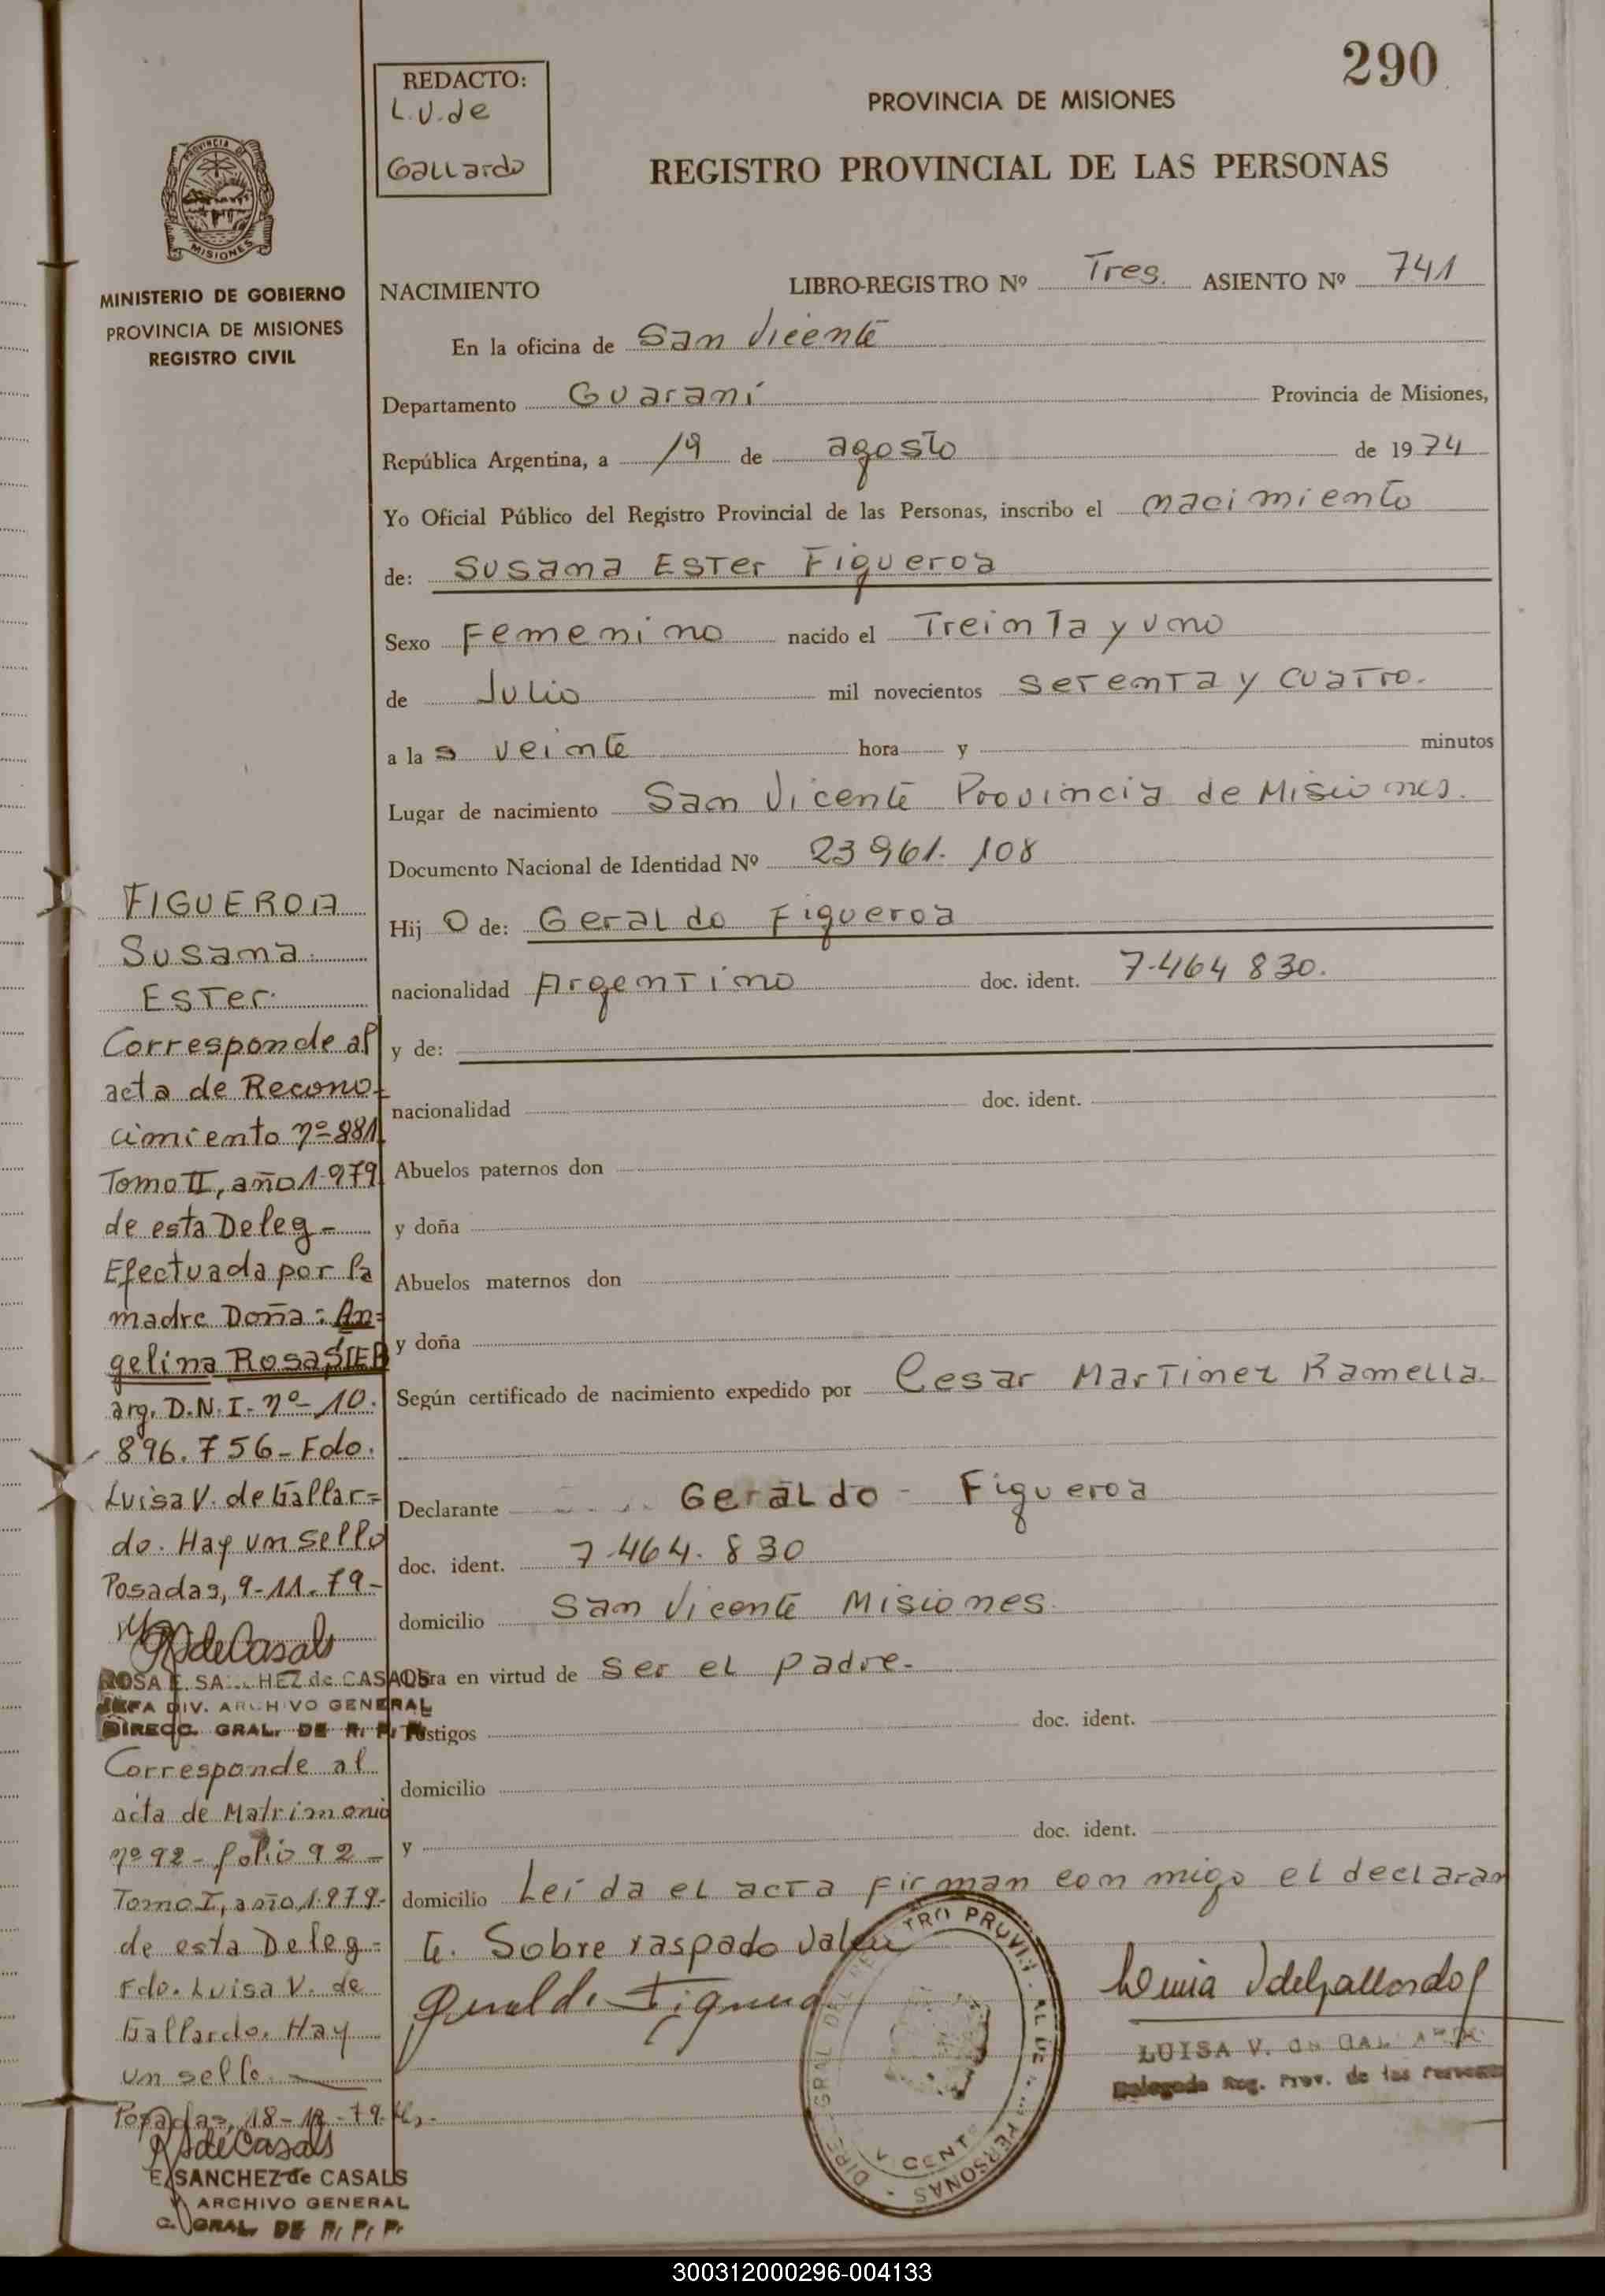 290
REDACTO:
L.V. de
Gallardo
PROVINCIA DE MISIONES
REGISTRO PROVINCIAL DE LAS PERSONAS
PROVINCIA DE
MISIONES
MINISTERIO DE GOBIERNO
PROVINCIA DE MISIONES
REGISTRO CIVIL
NACIMIENTO LIBRO-REGISTRO Nº Tres. ASIENTO Nº 741
En la oficina de San Vicente
Departamento Guaraní Provincia de Misiones,
República Argentina, a 19 de agosto de 1974
Yo Oficial Público del Registro Provincial de las Personas, inscribo el nacimiento
de: Susana Ester Figueroa
Sexo Femenino nacido el Treinta y uno
de Julio mil novecientos setenta y cuatro.
a las veinte hora y minutos
Lugar de nacimiento San Vicente Provincia de Misiones.
Documento Nacional de Identidad Nº 23 961. 108
Hij o de: Geraldo Figueroa
nacionalidad Argentino doc. ident. 7.464 830.
y de:
nacionalidad doc. ident.
Abuelos paternos don
y doña
Abuelos maternos don
y doña
Según certificado de nacimiento expedido por Cesar Martinez Ramella.
Declarante Geraldo - Figueroa
doc. ident. 7.464. 830
domicilio San Vicente Misiones.
Obra en virtud de ser el padre.
Testigos doc. ident.
domicilio
y doc. ident.
domicilio Leída el acta firman conmigo el declaran
te. Sobre raspado Vale
Gerald. Figueroa
LUISA V. de GALLARDO
Delegada Reg. Prov. de las Personas
FIGUEROA
Susana
Ester
Corresponde al
acta de Recono-
cimiento nº 881
Tomo II, año 1.979
de esta Deleg-
Efectuada por la
madre Doña: An-
gelina Rosa
arg. D.N.I. nº 10.
896.756- Fdo.
Luisa V. de Gallar=
do. Hay un sello
Posadas, 9-11-79-
RSdeCasals
ROSA E. SANCHEZ de CASALS
JEFA DIV. ARCHIVO GENERAL
DIRECC. GRAL. DE R. P. P.
Corresponde al
acta de Matrimonio
nº 92 - folio 92 -
Tomo I, año 1.979-
de esta Deleg-
Fdo. Luisa V. de
Gallardo. Hay
un sello.
Posadas, 18-12-79.
RSdeCasals
E. SANCHEZ de CASALS
ARCHIVO GENERAL
GRAL. DE R. P. P.
300312000296-004133